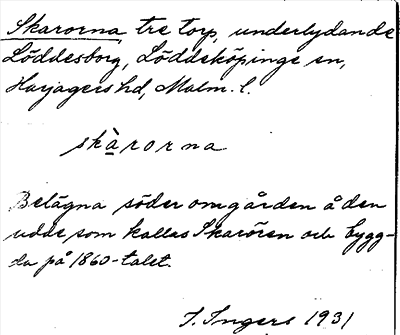 Skarorna, tre torp, underlydande
Löddesborg, Löddeköpinge sn,
Harjagers hd, Malm. l.
skàrorna
Belägna söder om gården å den
udde, som kallas Skarören och bygg-
da på 1860-talet.
I. Ingers 1931